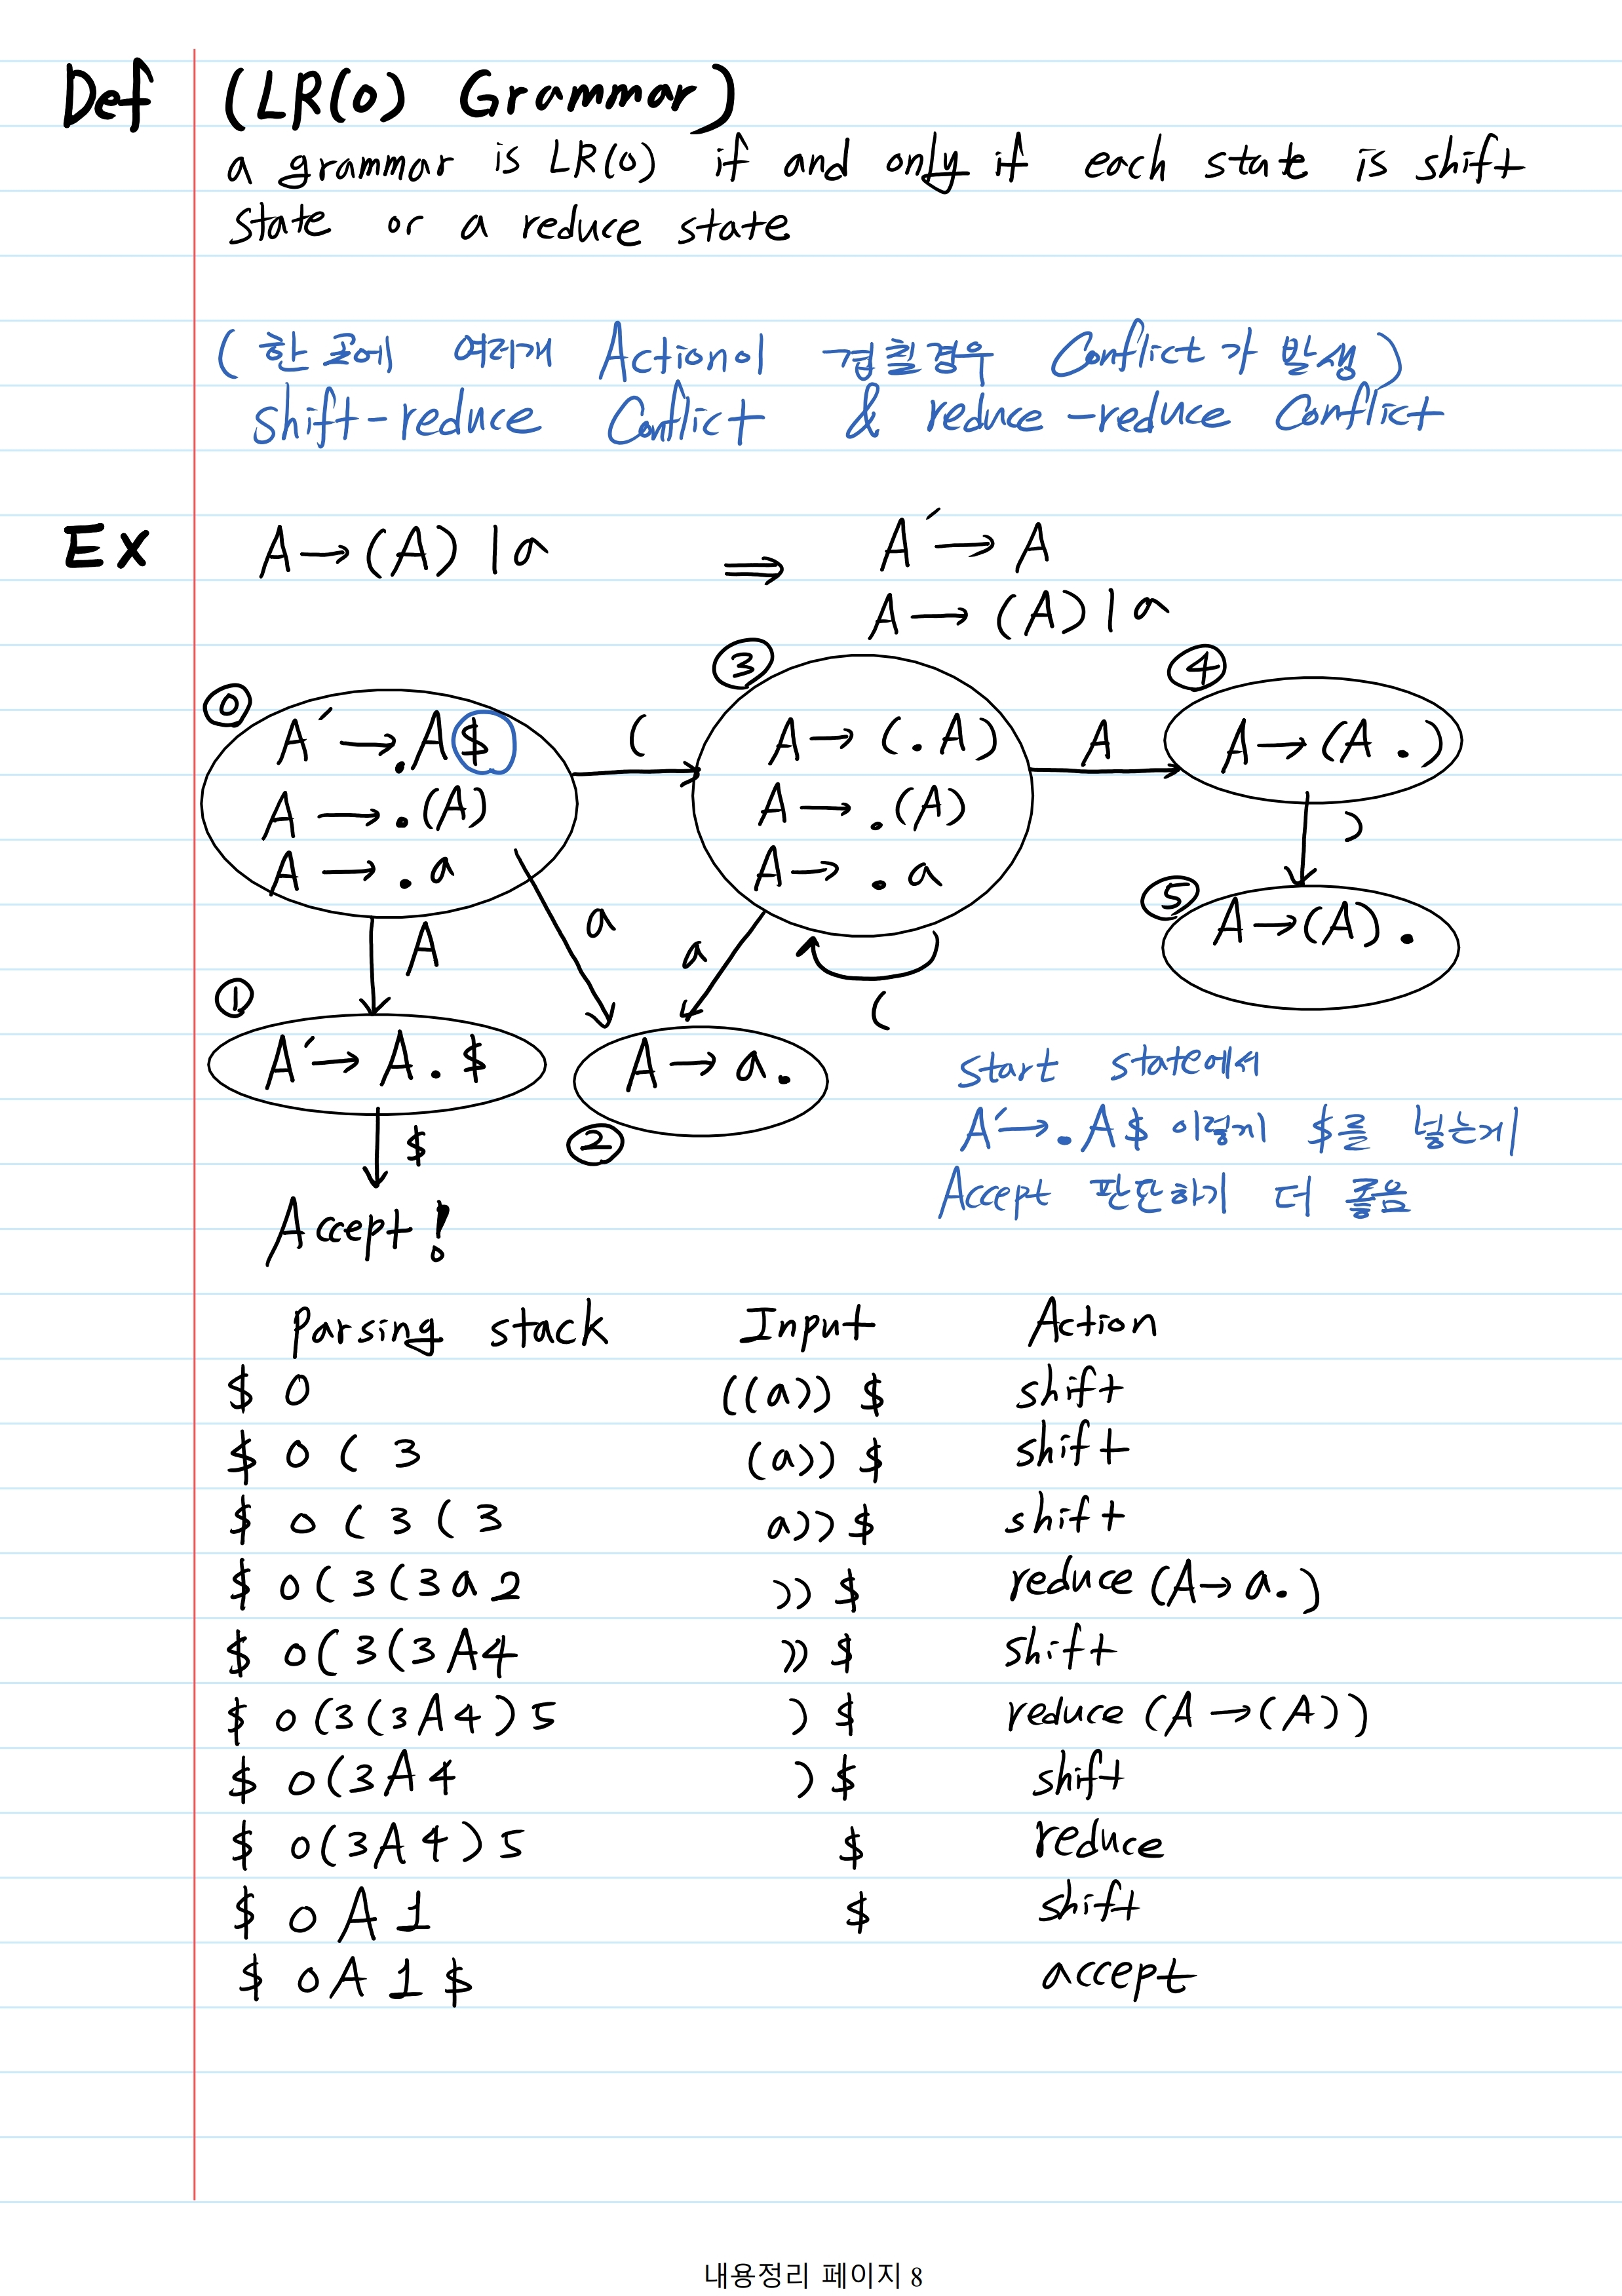 Def (LR(0) Grammar)
a grammar is LR(0) if and only if each state is shift
state or a reduce state
(한 곳에 여러개 Action이 겹칠경우 Conflict가 발생)
shift-reduce Conflict & reduce-reduce Conflict
Ex A→(A) | a ⇒ A′→ A
A → (A) | a
⓪ ③ ④
A′→.A$ ( A→(.A) A A→(A.)
A→.(A) A→.(A) )
A→.a A→.a ⑤
A a a ( A→(A).
① A′→A.$ A→a. ②
$
Accept!
start state에서
A′→.A$ 이렇게 $를 넣는게
Accept 판단하기 더 좋음
Parsing stack Input Action
$ 0 ((a)) $ shift
$ 0 ( 3 (a)) $ shift
$ 0 ( 3 ( 3 a)) $ shift
$ 0 ( 3 ( 3 a 2 )) $ reduce (A→a.)
$ 0 ( 3 ( 3 A 4 )) $ shift
$ 0 ( 3 ( 3 A 4 ) 5 ) $ reduce (A→(A))
$ 0 ( 3 A 4 ) $ shift
$ 0 ( 3 A 4 ) 5 $ reduce
$ 0 A 1 $ shift
$ 0 A 1 $ accept
내용정리 페이지 8